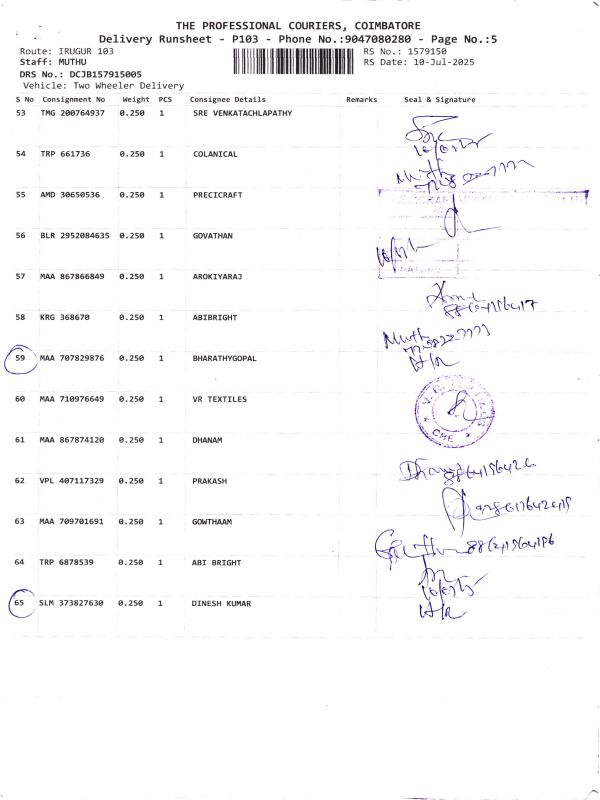 THE PROFESSIONAL COURIERS, COIMBATORE
Delivery Runsheet - P103 - Phone No.:9047080280 - Page No.:5
Route: IRUGUR 103 RS No.: 1579150
Staff: MUTHU RS Date: 10-Jul-2025
DRS No.: DCJB157915005
Vehicle: Two Wheeler Delivery
S No Consignment No Weight PCS Consignee Details Remarks Seal & Signature
53 TMG 200764937 0.250 1 SRE VENKATACHLAPATHY
54 TRP 661736 0.250 1 COLANICAL
55 AMD 30650536 0.250 1 PRECICRAFT
56 BLR 2952084635 0.250 1 GOVATHAN
57 MAA 867866849 0.250 1 AROKIYARAJ
58 KRG 368670 0.250 1 ABIBRIGHT
59 MAA 707829876 0.250 1 BHARATHYGOPAL
H/R
60 MAA 710976649 0.250 1 VR TEXTILES
CBE
61 MAA 867874120 0.250 1 DHANAM
62 VPL 407117329 0.250 1 PRAKASH
63 MAA 709701691 0.250 1 GOWTHAAM
64 TRP 6878539 0.250 1 ABI BRIGHT
65 SLM 373827630 0.250 1 DINESH KUMAR
H/R